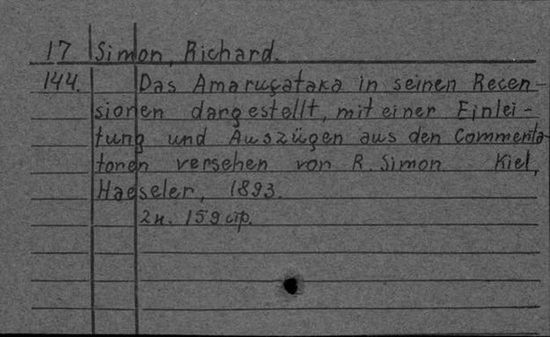 17 Simon, Richard.
144. Das Amaruçataka in seinen Recen-
sionen dargestellt, mit einer Einlei-
tung und Auszügen aus den Commenta-
toren versehen von R. Simon Kiel,
Haeseler, 1893.
2н. 159 стр.